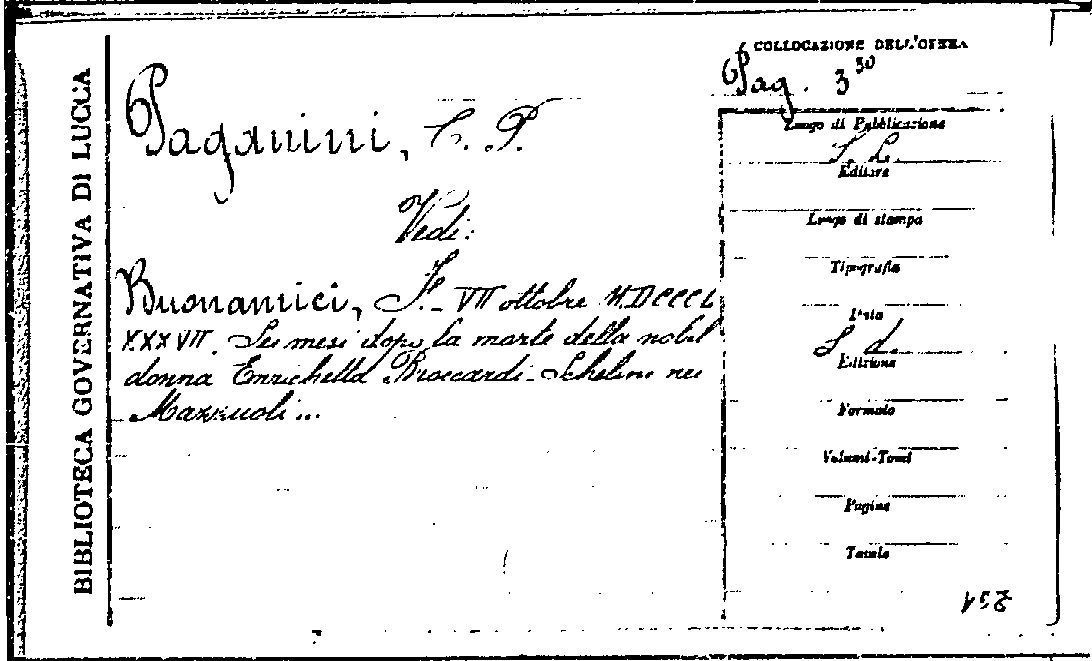 BIBLIOTECA GOVERNATIVA DI LUCCA
Paganini, C. P.
Vedi:
Buonamici, F. - VII ottobre MDCCCL
XXXVII. Sei mesi dopo la morte della nobil
donna Enrichetta Broccardi-Schelini nei
Mazzuoli...
COLLOCAZIONE DELL'OPERA
Pag. 3 30
Luogo di Pubblicazione
S. L.
Editore
Luogo di stampa
Tipografia
Data
S. d.
Edizione
Formato
Volumi-Tomi
Pagine
Tavole